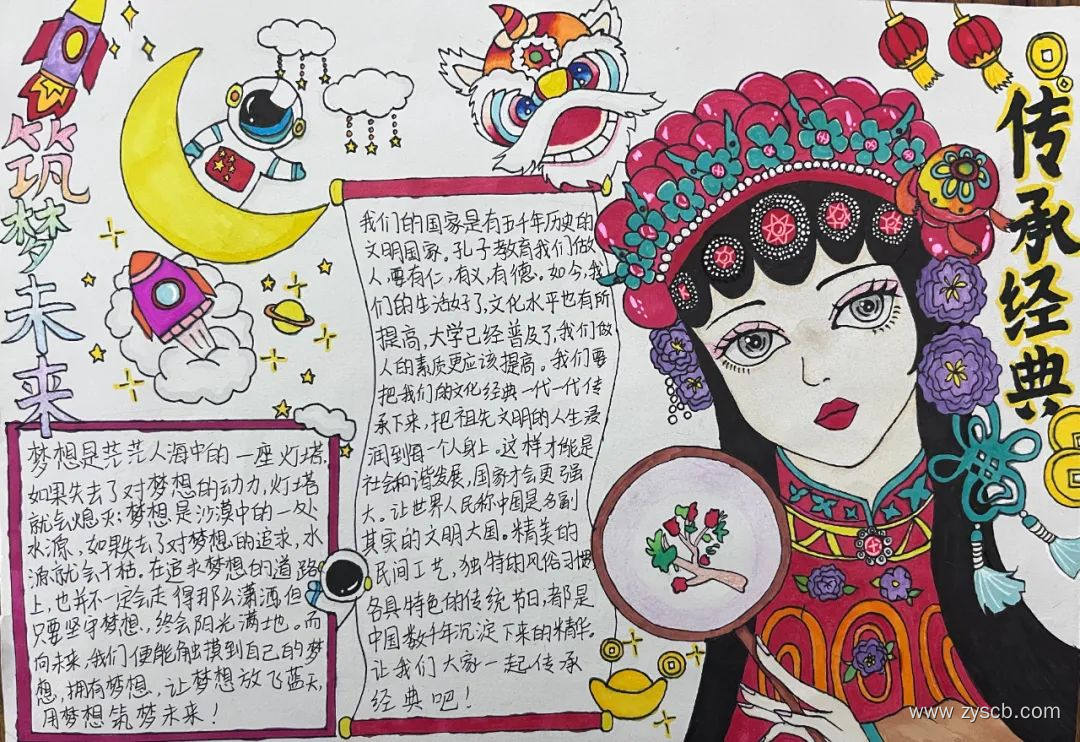 筑梦未来
传承经典
梦想是茫茫人海中的一座灯塔,
如果失去了对梦想的动力,灯塔
就会熄灭;梦想是沙漠中的一处
水源,如果失去了对梦想的追求,水
源就会干枯。在追求梦想的道路
上,也并不一定会走得那么潇洒,但
只要坚守梦想,终会阳光满地。而
向未来,我们便能触摸到自己的梦
想,拥有梦想,让梦想放飞蓝天,
用梦想筑梦未来!
我们的国家是有五千年历史的
文明国家。孔子教育我们做
人,要有仁,有义,有德。如今,我
们的生活好了,文化水平也有所
提高,大学已经普及了,我们做
人的素质更应该提高。我们要
把我们的文化经典一代一代传
承下来,把祖先文明的人生浸
润到每一个人身上。这样才能是
社会和谐发展,国家才会更强
大。让世界人民称中国是名副
其实的文明大国。精美的
民间工艺,独特的风俗习惯
各具特色的传统节日,都是
中国数千年沉淀下来的精华。
让我们大家一起传承
经典吧!
www.zyscb.com